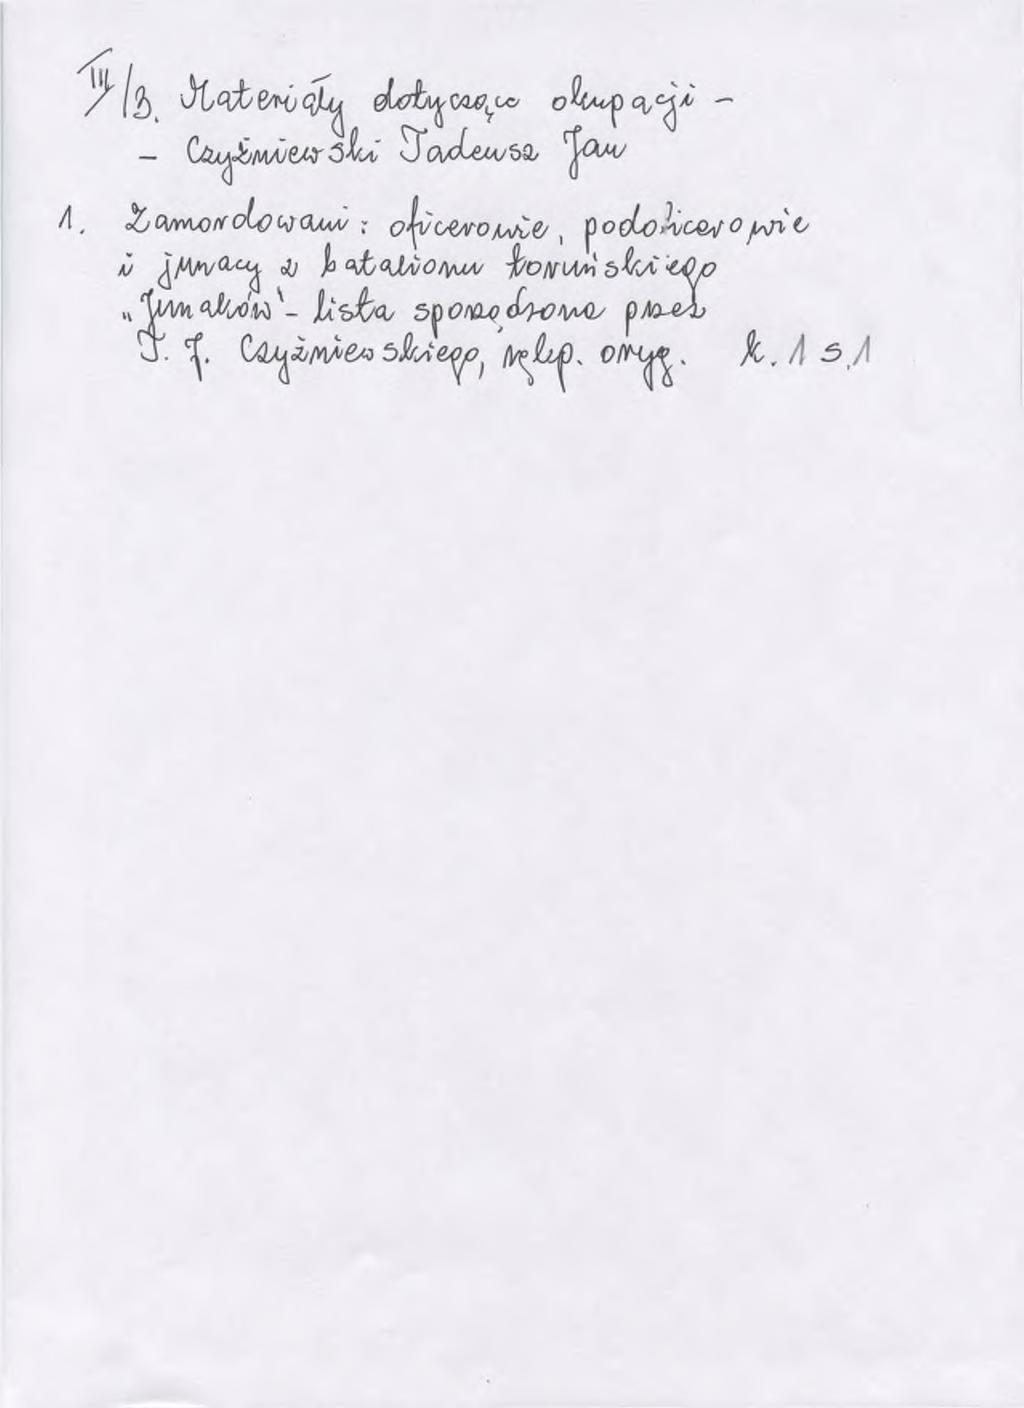 III/3. Materiały dotyczące okupacji -
- Czyżniewski Tadeusz Jan
1. Zamordowani: oficerowie, podoficerowie
i junacy z batalionu toruńskiego
„Junaków" - lista sporządzona przez
T. J. Czyżniewskiego, rękp. oryg. k. 1 s. 1